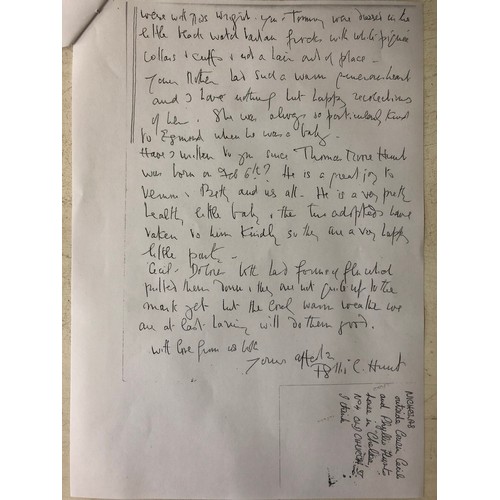 were with Miss Wright. you & Tommy were dressed in
little black watch tartan frocks with white piqué
collars & cuffs & not a hair out of place -
Your Mother had such a warm generous heart
and I have nothing but happy recollections
of her. She was always so particularly kind
to Egmond when he was a baby -
Have I written to you since Thomas Hunt
was born on Feb 6th? He is a great joy to
, Betty and us all. He is a very pretty
healthy little baby & the two adopteds have
taken to him kindly so they are a very happy
little party -
Cecil & both had forms of flu which
pulled them down & they are not quite up to the
mark yet but the warm weather we
are at last having will do them good.
with love from us both
Yours affectly
C. Hunt
NICHOLAS
outside Cousin Cecil
and Phyllis Hunt's
house in Chelsea,
No 4 OLD CHURCH ST
I think